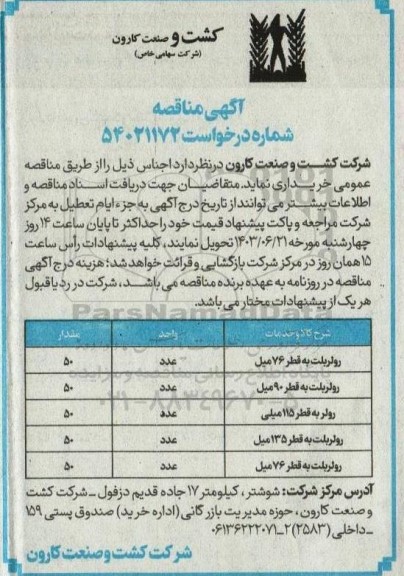 کشت و صنعت کارون
(شرکت سهامی خاص)
آگهی مناقصه
شماره درخواست ۵۴۰۲۱۱۷۲
شرکت کشت و صنعت کارون در نظر دارد اجناس ذیل را از طریق مناقصه
عمومی خریداری نماید. متقاضیان جهت دریافت اسناد مناقصه و
اطلاعات بیشتر می توانند از تاریخ درج آگهی به جزء ایام تعطیل به مرکز
شرکت مراجعه و پاکت پیشنهاد قیمت خود را حداکثر تا پایان ساعت ۱۴ روز
چهارشنبه مورخه ۱۴۰۳/۰۶/۲۱ تحویل نمایند، کلیه پیشنهادات رأس ساعت
۱۵ همان روز در مرکز شرکت بازگشایی و قرائت خواهد شد؛ هزینه درج آگهی
مناقصه در روزنامه به عهده برنده مناقصه می باشد، شرکت در رد یا قبول
هر یک از پیشنهادات مختار می باشد.
ParsNamadData
شرح کالا و خدمات واحد مقدار
رولربلت به قطر ۷۶ میل عدد ۵۰
رولربلت به قطر ۹۰ میل عدد ۵۰
رولر به قطر ۱۱۵ میلی عدد ۵۰
رولربلت به قطر ۱۳۵ میل عدد ۵۰
رولربلت به قطر ۷۶ میل عدد ۵۰
۰۲۱-۸۸۳۴۹۶۷۰-۵
آدرس مرکز شرکت: شوشتر، کیلومتر ۱۷ جاده قدیم دزفول ـ شرکت کشت
و صنعت کارون، حوزه مدیریت بازرگانی (اداره خرید) صندوق پستی ۱۵۹
ـ داخلی (۲۵۸۳) ۲_۰۶۱۳۶۲۲۲۰۷۱
شرکت کشت و صنعت کارون